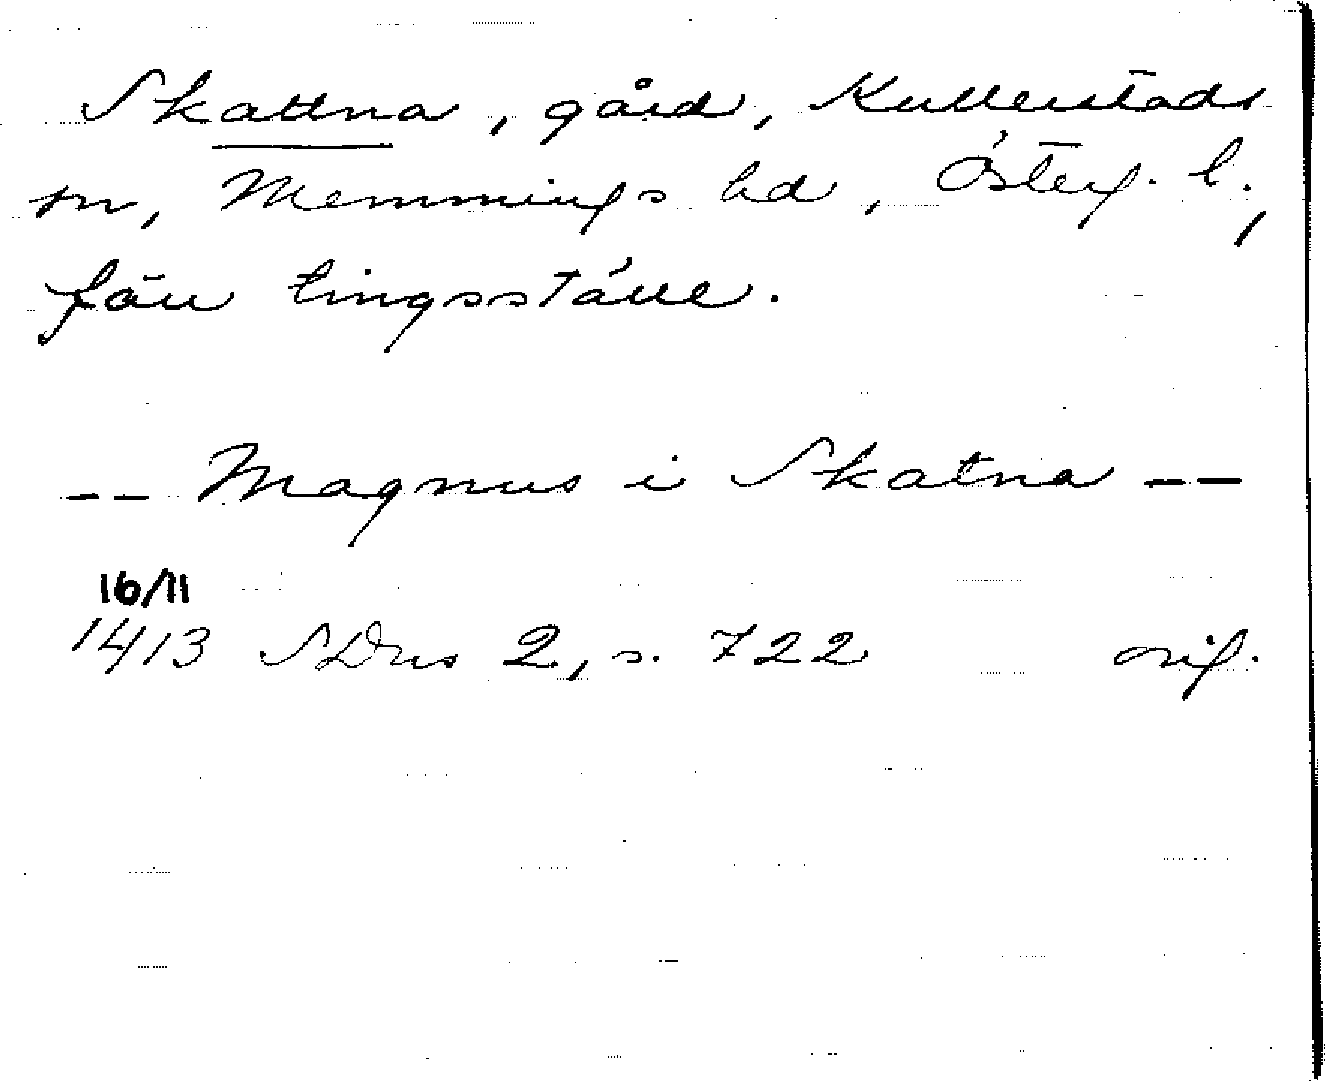 Skattna, gård, Kullerstads
sn, Memmings hd, Österg. l.,
förr tingsställe.
-- Magnus i Skatna --
16/11
1413 SDns 2, s. 722 orig.